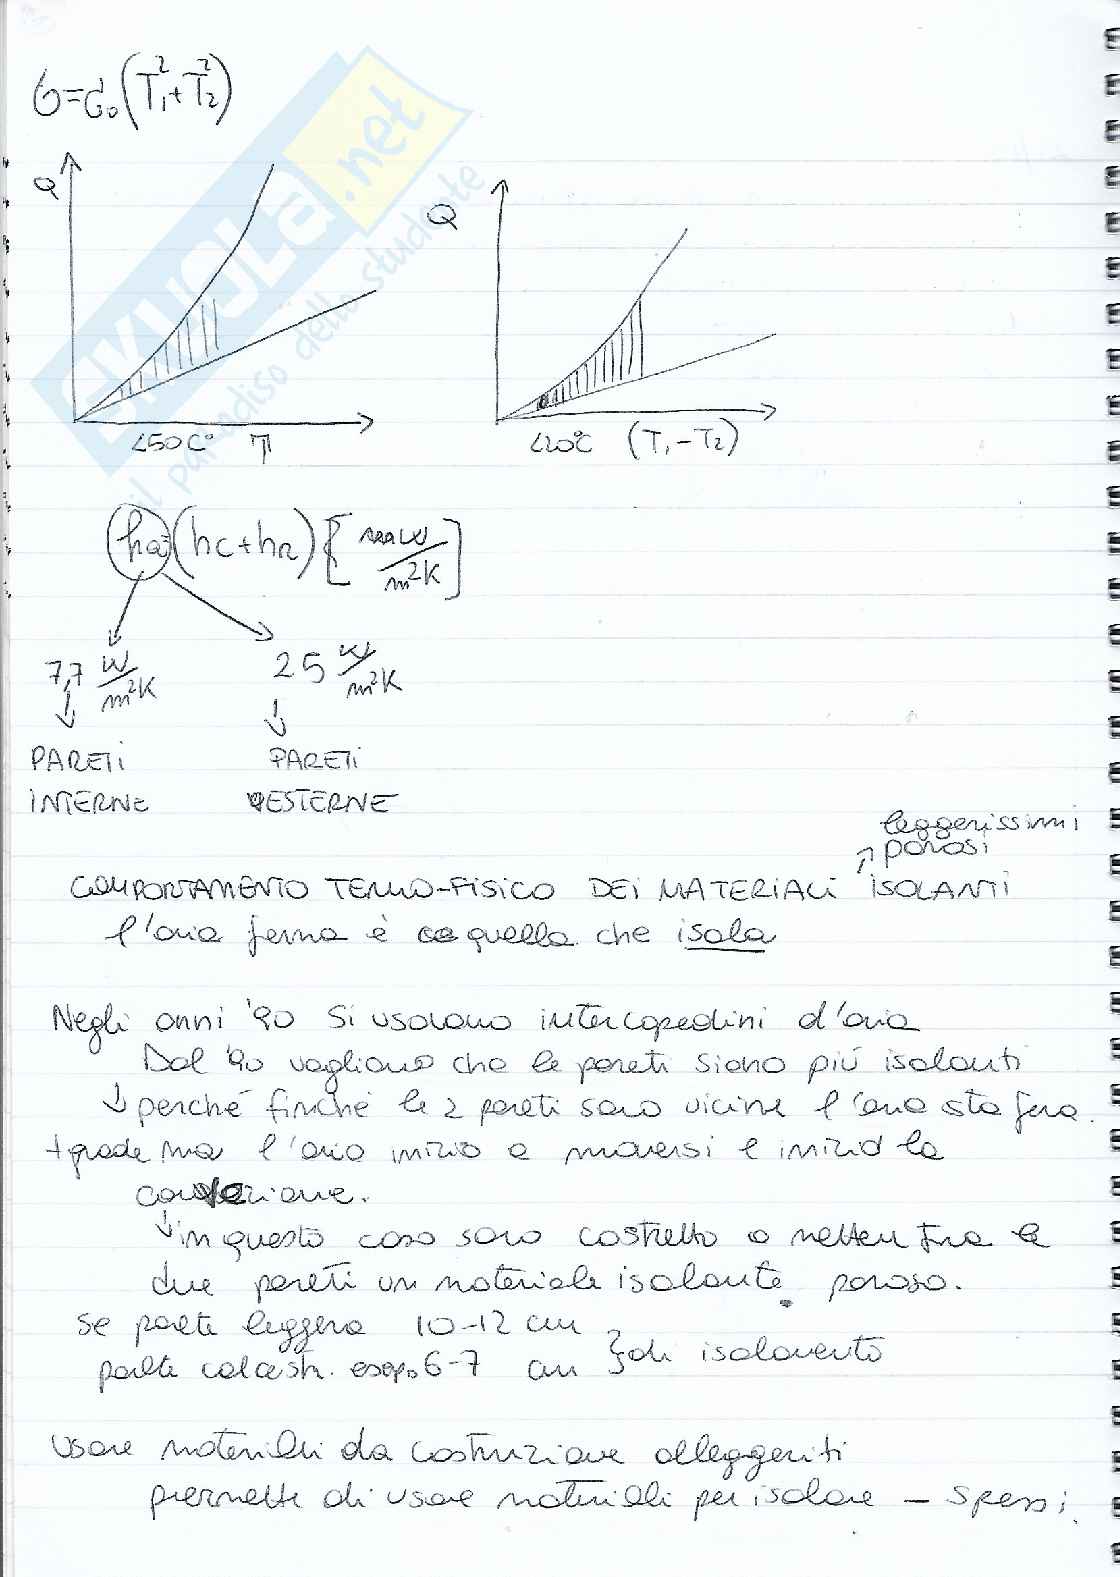 σ=σ₀(T₁²+T₂²)
Q
<50C° T
Q
<20°C (T₁-T₂)
ha=(hc+hr) [W/m²K]
7,7 W/m²K
25 W/m²K
PARETI
INTERNE
PARETI
ESTERNE
leggerissimi
porosi
COMPORTAMENTO TERMO-FISICO DEI MATERIALI ISOLANTI
l'aria ferma è quella che isola
Negli anni '90 si usavano intercapedini d'aria
Dal '90 vogliono che le pareti siano più isolanti
perché finché le 2 pareti sono vicine l'aria sta
+ grade ma l'aria inizia a muoversi e inizia la
convezione.
in questo caso sono costretto a metter fra le
due pareti un materiale isolante poroso.
se parete leggera 10-12 cm
parete calcestr. 6-7 cm } di isolamento
Usare materiali da costruzione alleggeriti
permette di usare materiali per isolare - spessi.
SKUOLA.net
il paradiso dello studente